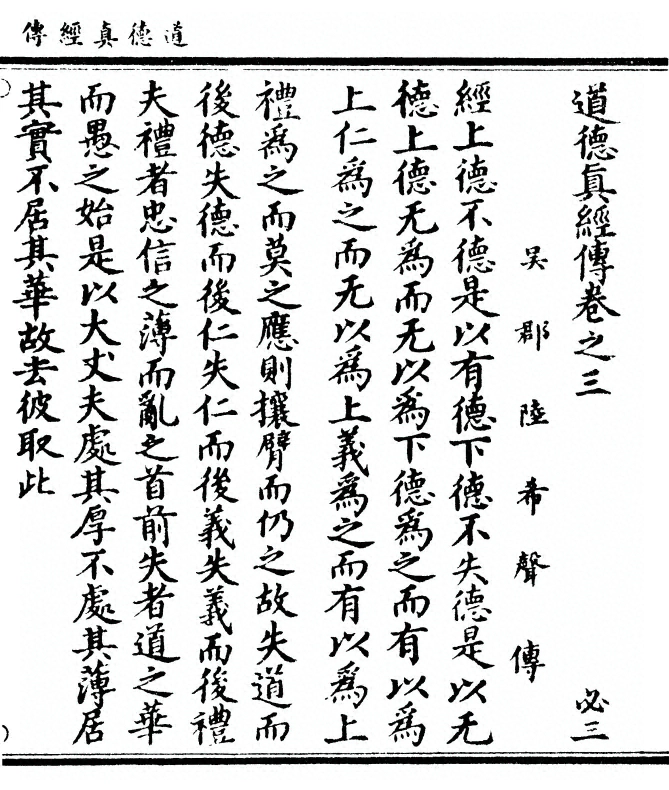 道德真經傳
道德眞經傳卷之三 必三
吳郡陸希聲傳
經上德不德是以有德下德不失德是以无
德上德无爲而无以爲下德爲之而有以爲
上仁爲之而无以爲上義爲之而有以爲上
禮爲之而莫之應則攘臂而仍之故失道而
後德失德而後仁失仁而後義失義而後禮
夫禮者忠信之薄而亂之首前失者道之華
而愚之始是以大丈夫處其厚不處其薄居
其實不居其華故去彼取此